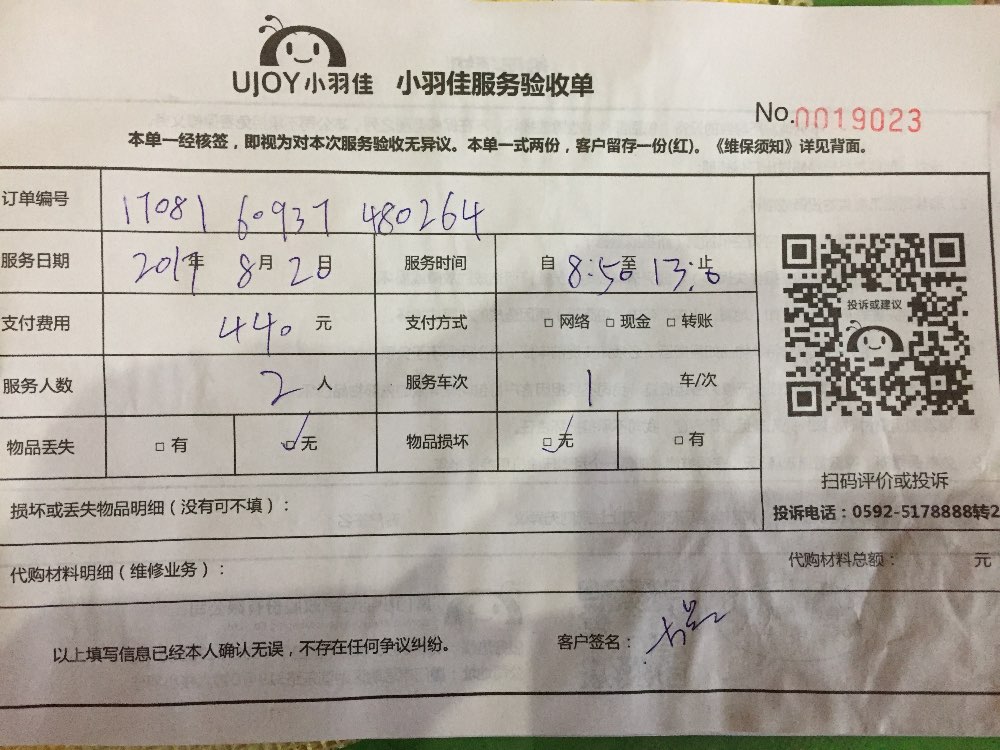 UJOY小羽佳 小羽佳服务验收单
No.0019023
本单一经核签，即视为对本次服务验收无异议。本单一式两份，客户留存一份(红)。《维保须知》详见背面。
订单编号 17081 60937 480264
服务日期 2017年 8月 20日 服务时间 自 8:50至 13:0止
支付费用 440 元 支付方式 □ 网络 □ 现金 □ 转账
服务人数 2 人 服务车次 1 车/次
物品丢失 □ 有 ☑ 无 物品损坏 ☑ 无 □ 有
投诉或建议
扫码评价或投诉
投诉电话：0592-5178888转2
损坏或丢失物品明细（没有可不填）：
代购材料明细（维修业务）： 代购材料总额： 元
以上填写信息已经本人确认无误，不存在任何争议纠纷。 客户签名：